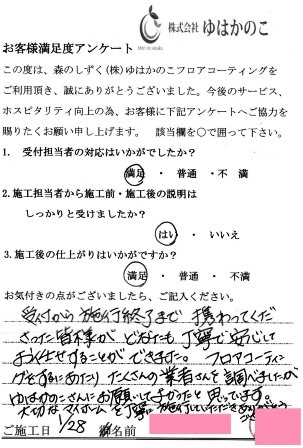 株式会社 ゆはかのこ
お客様満足度アンケート
この度は、森のしずく(株)ゆはかのこフロアコーティングを
ご利用頂き、誠にありがとうございました。今後のサービス、
ホスピタリティ向上の為、お客様に下記アンケートへご協力を
賜りたくお願い申し上げます。 該当欄を〇で囲って下さい。
1. 受付担当者の対応はいかがでしたか?
満足 ・ 普通 ・不 満
2.施工担当者から施工前・施工後の説明は
しっかりと受けましたか?
はい ・ いいえ
3.施工後の仕上がりはいかがですか?
満足 ・ 普通 ・ 不満
お気付きの点がございましたら、ご記入ください。
受付から施行終了まで 携わってくだ
さった皆様が どなたも 丁寧で安心して
お任せすることができます。 フロアコーティン
グをするにあたり たくさんの業者さんを調べましたが
ゆはかのこさんにお願いしてよかったと思っています。
大切なマイホームを丁寧に施行していただきありがとう
ご施工日 1/28 御名前